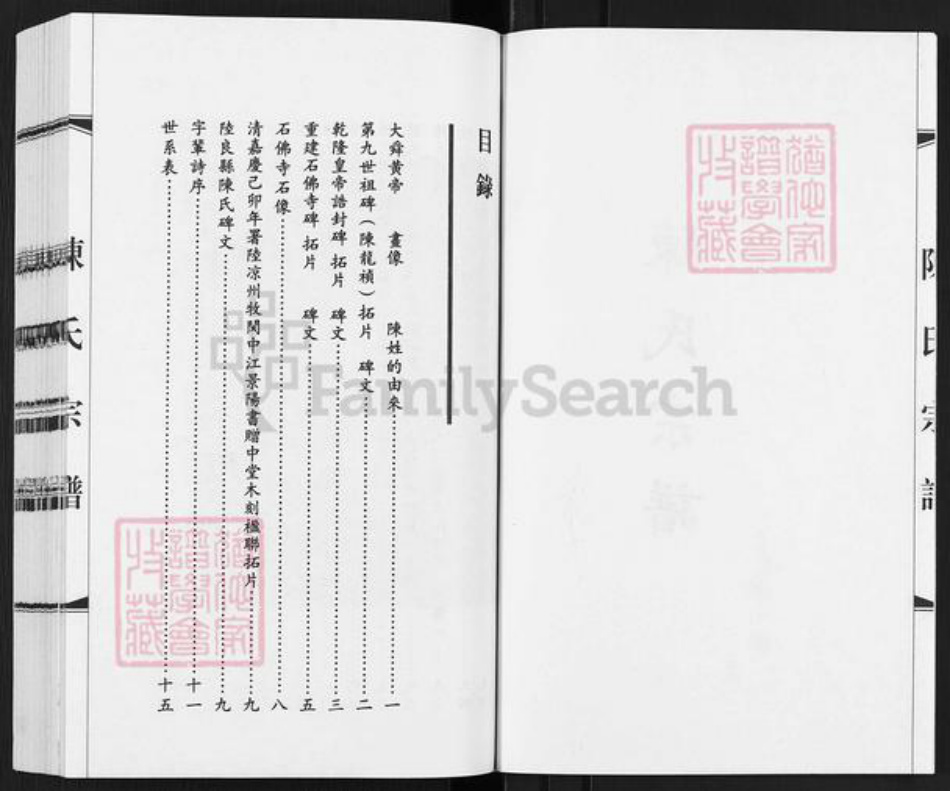 目錄
大舜黄帝　畫像　陳姓的由來……一
第九世祖碑（陳龍禎）拓片　碑文……二
乾隆皇帝誥封碑　拓片　碑文……三
重建石佛寺碑　拓片　碑文……五
石佛寺石像……八
清嘉慶己卯年署陸凉州牧関中江景陽書贈中堂木刻楹聯拓片……九
陸良縣陳氏碑文……九
字輩詩序……十一
世系表……十五
陳氏宗譜
FamilySearch
猶他家譜學會收藏
猶他家譜學會收藏